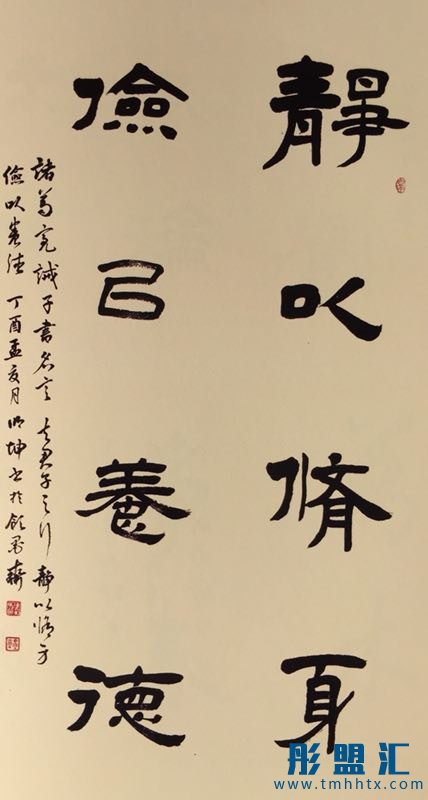 靜以脩身
儉已養德
諸葛亮誡子書名言 夫君子之行 靜以脩身
儉以養德 丁酉孟夏月 坤書於 軒
彤盟汇
www.tmhhtx.com